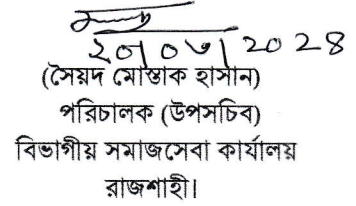 ২৭/০৬/2028
(সৈয়দ মোস্তাক হাসান)
পরিচালক (উপসচিব)
বিভাগীয় সমাজসেবা কার্যালয়
রাজশাহী।